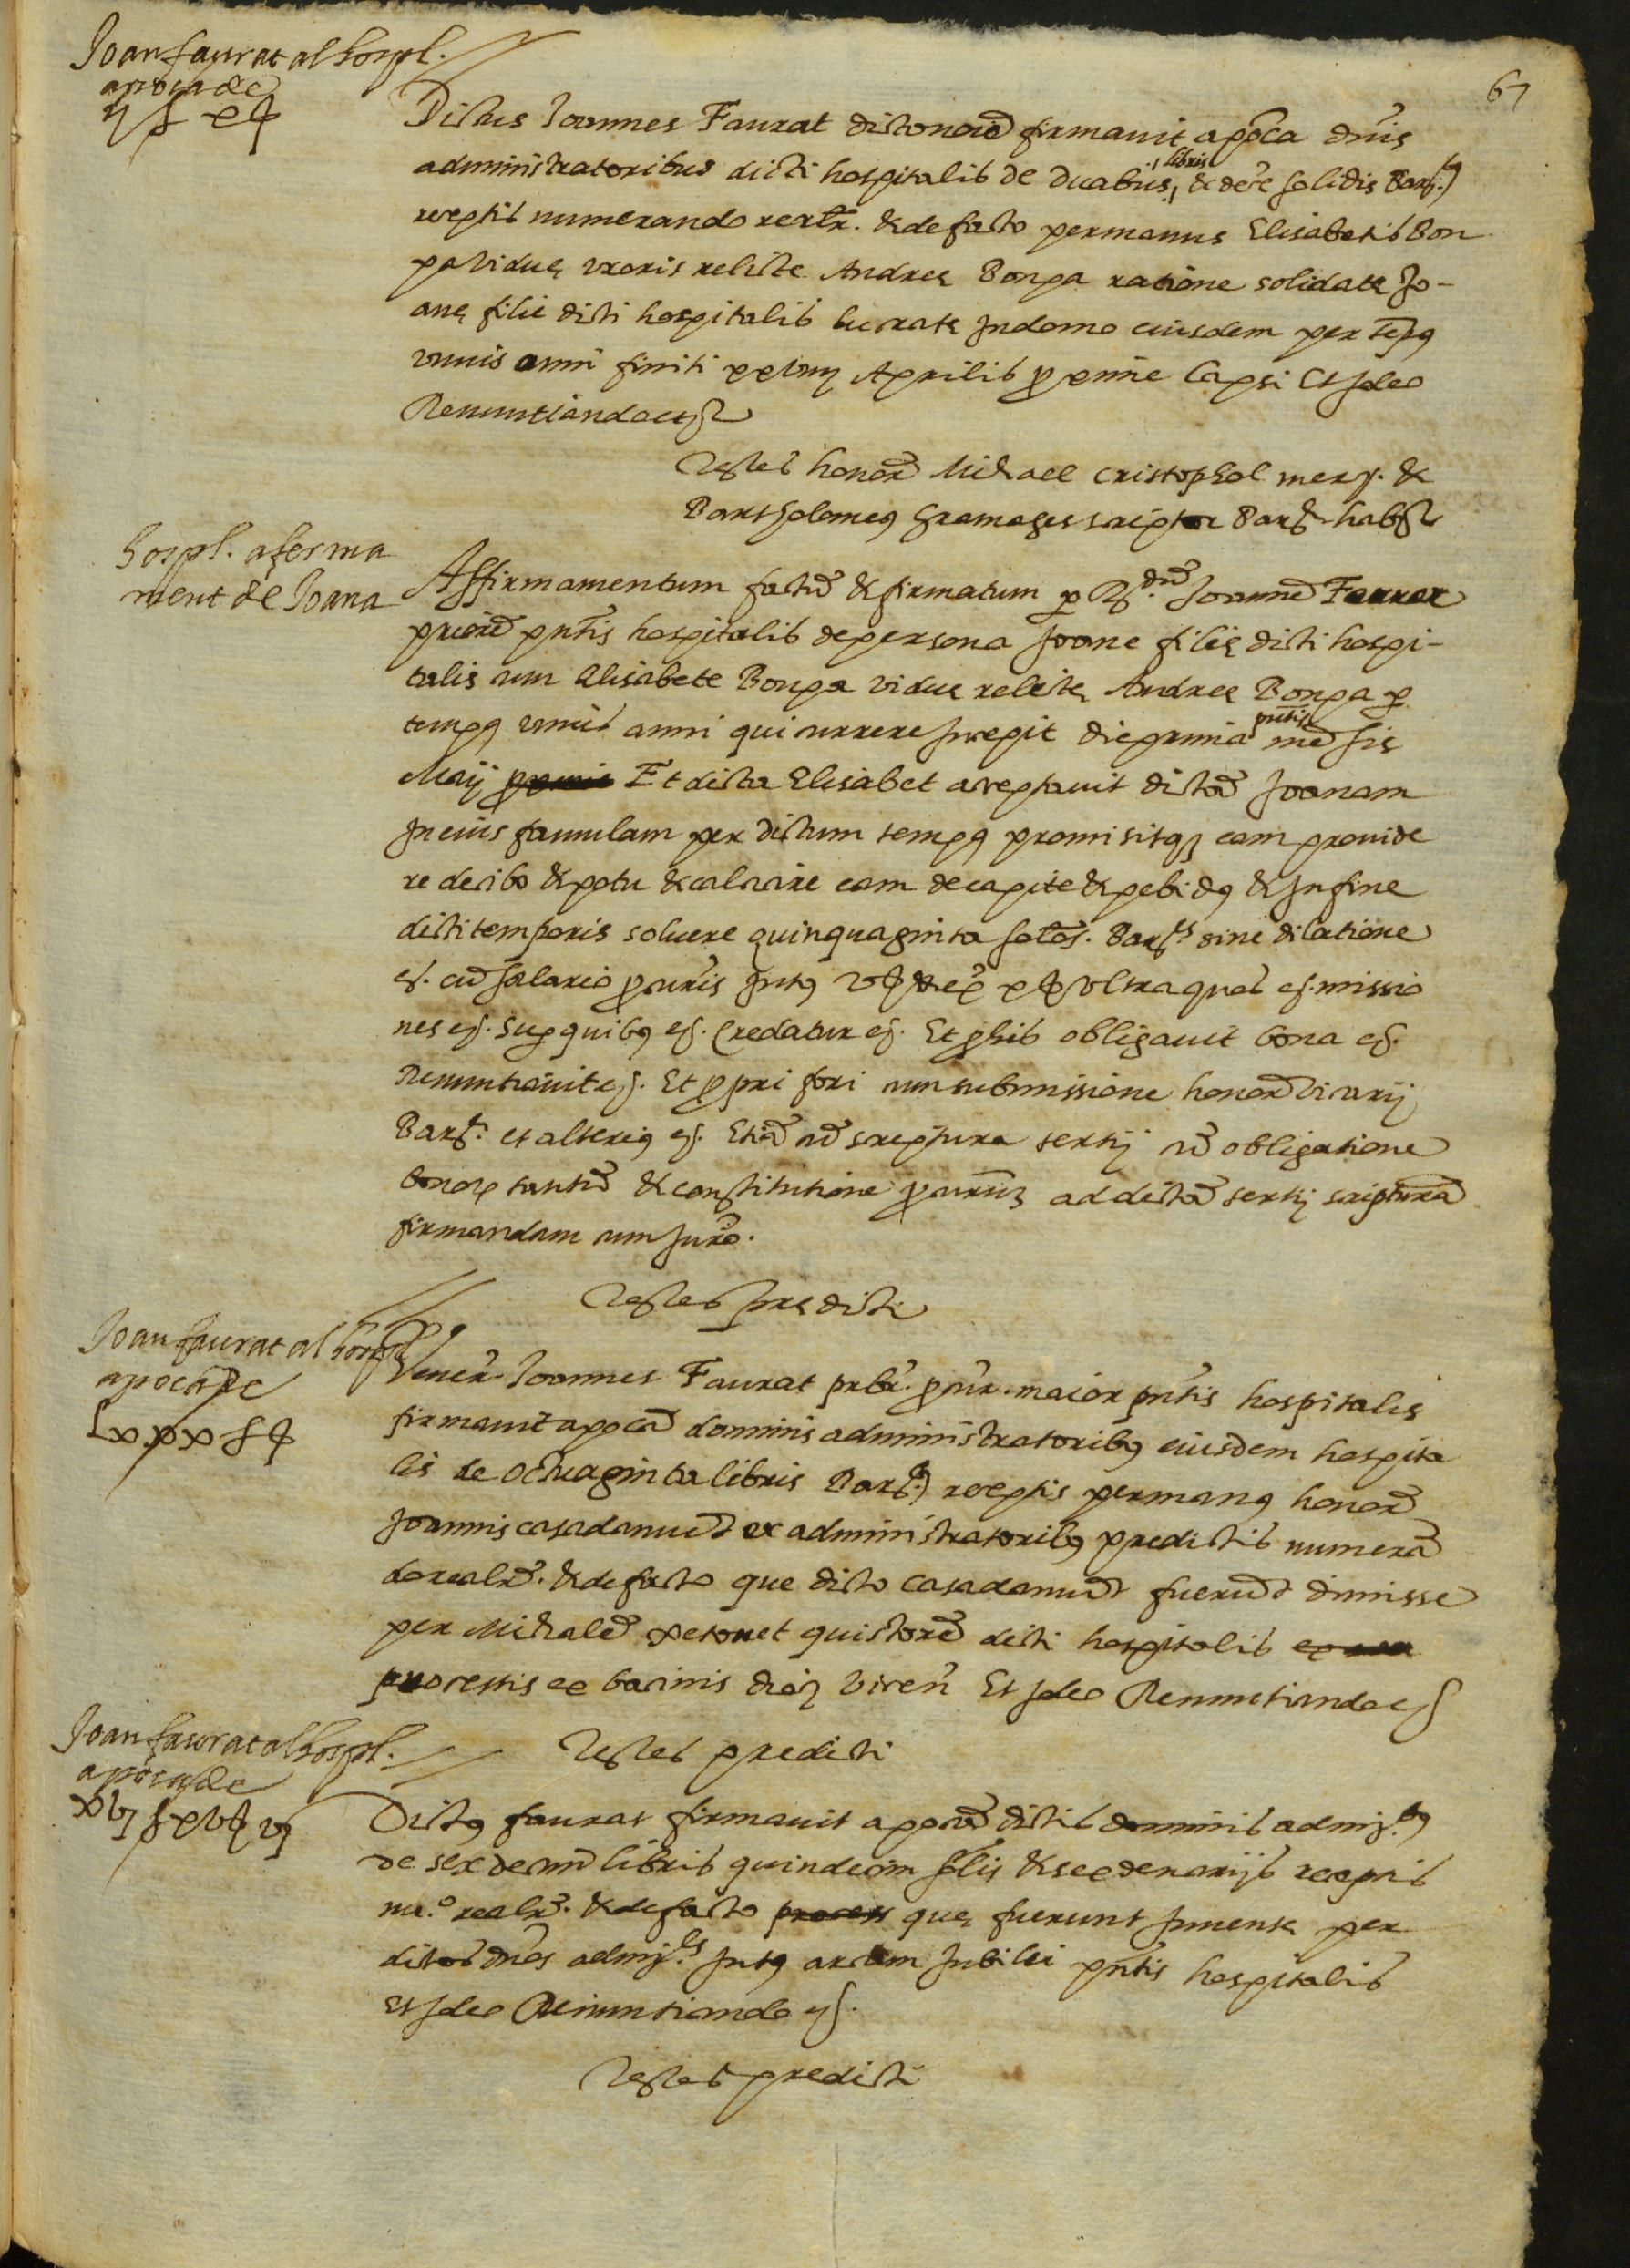 67
Joan faurat al hospl.
apoca de
ij £ x ß
Dictus Joannes Faurat dicto noie firmavit apoca dnis
administratoribus dicti hospitalis de duabus libris & dece solidis Barq.
receptis numerando realr. & de facto per manus Elisabetis Bon
pa vidue uxoris relicte Andreę Bonpa ratione solidatę Jo-
anę filie dicti hospitalis lucratę In domo eiusdem per tēpꝯ
unius anni finiti Aprilis proxime lapsi Et Ideo
Renuntiando etc
Testes honor. Michael Cristophol merq. &
Bartholomeꝯ Gramages scriptor Barq. habs
hospl. aferma
ment de Joana
Affirmamentum factū & firmatum p R. dn̄ Joannē Ferrer
priorē pn̄tis hospitalis de persona Joane filię dicti hospi-
talis cum Elisabete Bonpa vidue relictę Andreę Bonpa p
tempꝯ unius anni qui currere Incepit die prima pn̄tis mēsis
Maij Et dicta Elisabet acceptavit dictā Joanam
In eius famulam per dictum tempꝯ promisitqꝫ eam provide
re de cibo & potu & calciare eam de capite & pedibꝯ & In fine
dicti temporis solvere quinquaginta solos. Barqs sine dilatione
etc. cū salario pcuris Intꝯ v ß & ex x ß ultra quos etc. missio
nes etc. Sup quibꝯ etc. Credatur etc. Et p his obligavit bona etc.
Renuntiavit etc. Et ppri fori cum submissione honor. vicarij
Barq. et alteriꝯ etc. Etiā cū scriptura tertij cū obligatione
bonoꝝ tantū & constitutione pcurūȝ ad dictā tertij scripturā
firmandam cum Juro.
Testes prędicti
Joan faurat al hospl
apoca de
Lxxx £ ß
Vener. Joannes Faurat prbr. pcur. maior pn̄tis hospitalis
firmavit apocā dominis administratoribꝯ eiusdem hospita
lis de octuaginta libris Barq. receptis per manꝯ honor.
Joannis casadamunt ex administratoribꝯ predictis numerā
do realr. & de facto que dicto casadamunt fuerunt dimisse
per Michalē xetonet quistorē dicti hospitalis
processis ex bacinis Et Ideo Renuntiando etc
Testes predicti
Joan faurat al hospl.
apoca de
xvj £ xv ß vj
Dictꝯ faurat firmavit apocā dictis dominis admi.
de sexdecim libris quindecim solis & sex denarijs receptis
nu.o realr. & de facto process quę fuerunt Inventę per
dictos dn̄os admi. Intꝯ arcam Jubilei pn̄tis hospitalis
Et Ideo Renuntiando etc.
Testes predicti